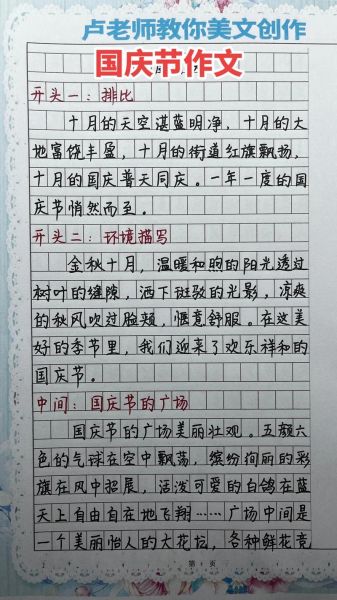 卢老师教你美文创作
国庆节作文
开头一：排比
十月的天空湛蓝明净，十月的大
地富饶丰盈，十月的街道红旗飘扬，
十月的国庆普天同庆。一年一度的国
庆节悄然而至。
开头二：环境描写
金秋十月，温暖和煦的阳光透过
树叶的缝隙，洒下斑驳的光影，凉爽
的秋风吹过脸颊，惬意舒服。在这美
好的季节里，我们迎来了欢乐祥和的
国庆节。
中间：国庆节的广场
国庆节的广场美丽壮观。五颜六
色的气球在空中飘荡，缤纷绚丽的彩
旗在风中招展，活泼可爱的白鸽在蓝
天上自由自在地飞翔……广场中间是
一个美丽怡人的大花坛，各种鲜花竞
第 1 页